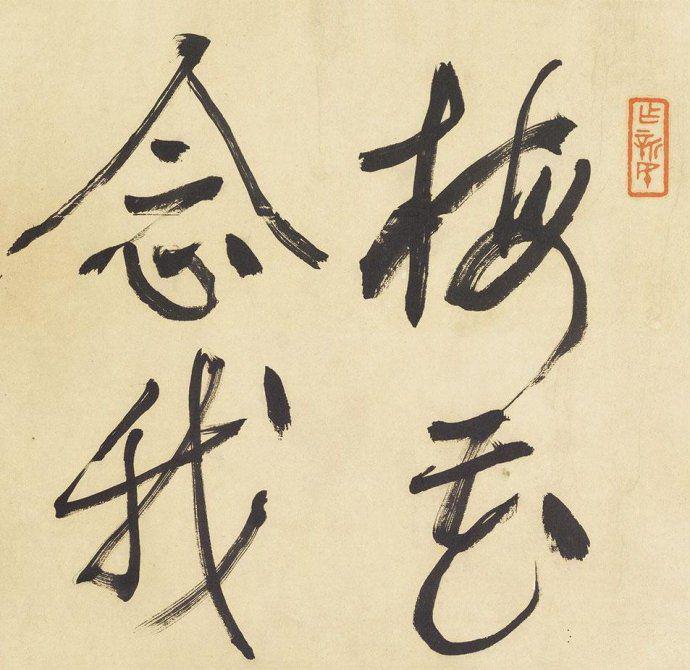 梅花
念我